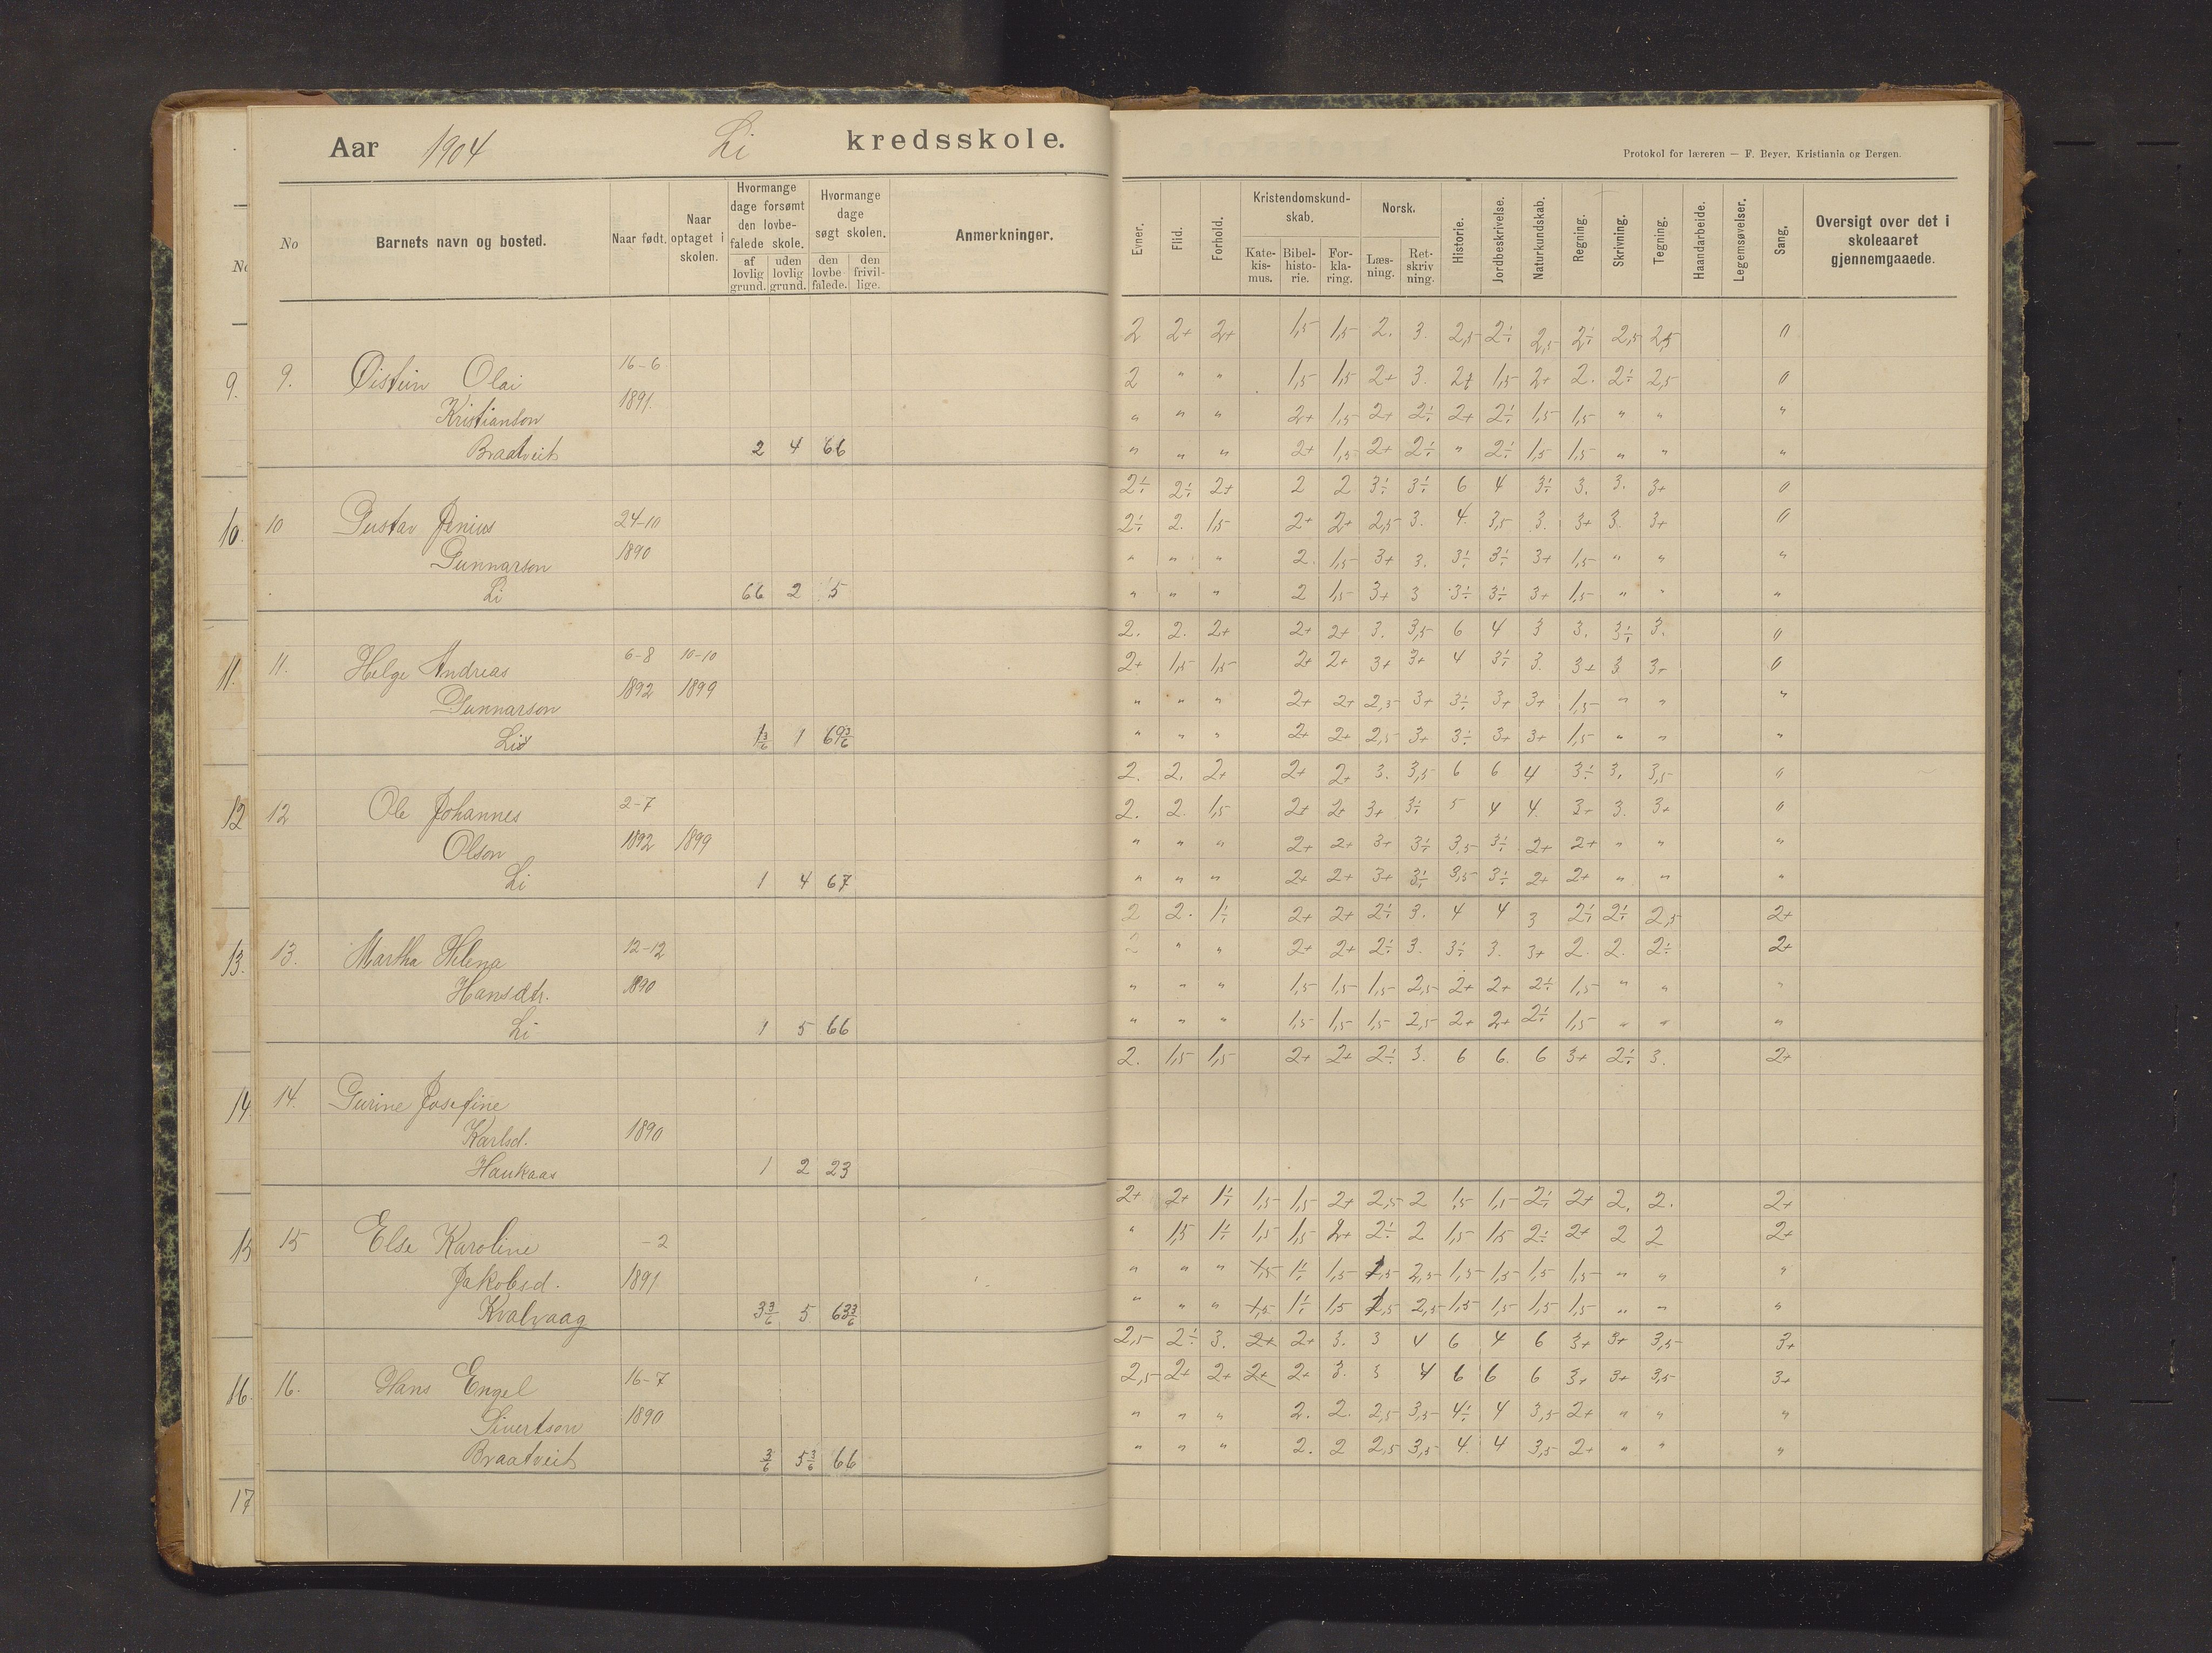 Aar 1904 Li kredsskole.
Protokol for læreren — F. Beyer, Kristiania og Bergen.
No Barnets navn og bosted. Naar født. Naar optaget i skolen. Hvormange dage forsømt den lovbefalede skole. af lovlig grund. uden lovlig grund. Hvormange dage søgt skolen. den lovbefalede. den frivillige. Anmerkninger.
Evner. Flid. Forhold. Kristendomskundskab. Katekismus. Bibelhistorie. Forklaring. Norsk. Læsning. Retskrivning. Historie. Jordbeskrivelse. Naturkundskab. Regning. Skrivning. Tegning. Haandarbeide. Legemsøvelser. Sang. Oversigt over det i skoleaaret gjennemgaaede.
2 2+ 2+ 1,5 1,5 2. 3. 2,5 2÷ 2,5 2÷ 2,5 2,5 0
9. 9. Øistein Olai 16-6 2 " " 1,5 1,5 2+ 3. 2+ 1,5 2+ 2. 2÷ 2,5 0
Kristianson 1891. " " " 2+ 1,5 2+ 2÷ 2+ 2÷ 1,5 1,5 " " "
Braatveit 2 4 66 " " " 2+ 1,5 2+ 2÷ " 2÷ 1,5 1,5 " " "
2÷ 2÷ 2+ 2 2 3÷ 3÷ 6 4 3÷ 3. 3. 3+ 0
10. 10 Gustav Jenius 24-10 2÷ 2. 1,5 2+ 2+ 2,5 3. 4. 3,5 3. 3+ 3. 3+ 0
Gunnarson 1890 " " " 2. 1,5 3+ 3. 3÷ 3÷ 3+ 1,5 " " "
Li 66 2 5 " " " 2 1,5 3+ 3 3÷ 3÷ 3+ 1,5 " " "
2. 2. 2+ 2+ 2+ 3. 3,5 6 4 3 3. 3÷ 3. 0
11. 11. Helge Andreas 6-8 10-10 2+ 1,5 1,5 2+ 2+ 3+ 3+ 4 3÷ 3. 3+ 3 3+ 0
Gunnarson 1892 1899 " " " 2+ 2+ 2,5 3+ 3÷ 3+ 3+ 1,5 " " "
Li 1 3/6 1 69 3/6 " " " 2+ 2+ 2,5 3+ 3÷ 3+ 3+ 1,5 " " "
2. 2. 2+ 2+ 2+ 3. 3,5 6 6 4 3÷ 3. 3,5 0
12 12 Ole Johannes 2-7 2. 2. 1,5 2+ 2+ 3+ 3÷ 5 4 4. 3+ 3. 3+ 0
Olson 1892 1899 " " " 2+ 2+ 3+ 3÷ 3,5 3÷ 2+ 2+ " " "
Li 1 4 67 " " " 2+ 2+ 3+ 3÷ 3,5 3÷ 2+ 2+ " " "
2 2. 1÷ 2+ 2+ 2÷ 3. 4 4 3 2÷ 2÷ 2,5 2+
13. 13. Martha Helena 12-12 2 " " 2+ 2+ 2÷ 3. 3÷ 3. 3+ 2. 2. 2÷ 2+
Hansdtr. 1890 " " " 1,5 1,5 1,5 2,5 2+ 2+ 2÷ 1,5 " " "
Li 1 5 66 " " " 1,5 1,5 1,5 2,5 2+ 2+ 2÷ 1,5 " " "
2. 1,5 1,5 2+ 2+ 2÷ 3. 6 6. 6 3+ 2÷ 3. 2+
14. 14. Gurine Josefine
Karlsd. 1890
Haukaas 1 2 23
2+ 2+ 1÷ 1,5 1,5 2+ 2,5 2 1,5 1,5 2÷ 2+ 2. 2. 2+
15 15 Else Karoline -2 " 1,5 1÷ 1,5 1,5 2+ 2÷ 2 1,5 1,5 2÷ 2+ 2 2 2+
Jakobsd. 1891 " " " 1,5 1÷ 1,5 1,5 2,5 1,5 1,5 1,5 1,5 " " "
Kvalvaag 3 3/6 5 63 3/6 " " " 1,5 1÷ 1,5 1,5 2,5 1,5 1,5 1,5 1,5 " " "
2,5 2÷ 3. 2+ 2+ 3. 3 4 6 4 6 3+ 3+ 3,5 3+
16. 16. Hans Engel 16-7 2,5 2+ 2+ 2+ 2+ 3. 3 4 6 6 6 3+ 3+ 3,5 3+
Sivertson 1890 " " " 2. 2. 2,5 3,5 4÷ 4 3,5 2+ " " "
Braatveit 3/6 5 3/6 66 " " " 2. 2 2,5 3,5 4. 4 3,5 2+ " " "
17